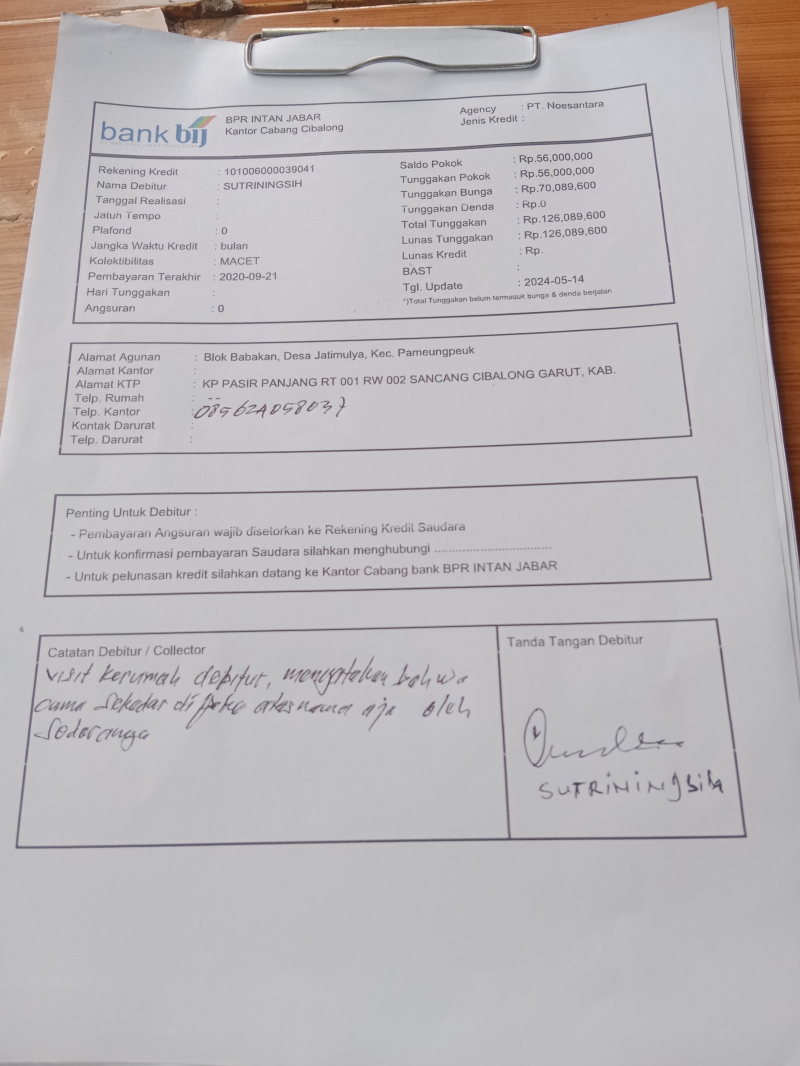 bank bij
BPR INTAN JABAR
Kantor Cabang Cibalong
Agency : PT. Noesantara
Jenis Kredit :
Rekening Kredit : 101006000039041
Nama Debitur : SUTRININGSIH
Tanggal Realisasi :
Jatuh Tempo :
Plafond : 0
Jangka Waktu Kredit : bulan
Kolektibilitas : MACET
Pembayaran Terakhir : 2020-09-21
Hari Tunggakan :
Angsuran : 0
Saldo Pokok : Rp.56,000,000
Tunggakan Pokok : Rp.56,000,000
Tunggakan Bunga : Rp.70,089,600
Tunggakan Denda : Rp.0
Total Tunggakan : Rp.126,089,600
Lunas Tunggakan : Rp.126,089,600
Lunas Kredit : Rp.
BAST :
Tgl. Update : 2024-05-14
*)Total Tunggakan belum termasuk bunga & denda berjalan
Alamat Agunan : Blok Babakan, Desa Jatimulya, Kec. Pameungpeuk
Alamat Kantor :
Alamat KTP : KP PASIR PANJANG RT 001 RW 002 SANCANG CIBALONG GARUT, KAB.
Telp. Rumah : --
Telp. Kantor : 085624058037
Kontak Darurat :
Telp. Darurat :
Penting Untuk Debitur :
- Pembayaran Angsuran wajib disetorkan ke Rekening Kredit Saudara
- Untuk konfirmasi pembayaran Saudara silahkan menghubungi ................................
- Untuk pelunasan kredit silahkan datang ke Kantor Cabang bank BPR INTAN JABAR
Catatan Debitur / Collector
visit kerumah debitur, mengatakan bahwa
cuma sekedar di pake atasnama aja oleh
sodaranya
Tanda Tangan Debitur
SUTRININgsih